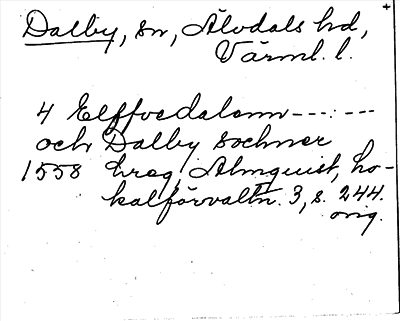 Dalby, sn, Älvdals hd,
Värml. l.
4 Elffvedalenn ---:---
och Dalby sochner
1558 hreg, Almquist, Lo-
kalförvaltn. 3, s. 244.
orig.